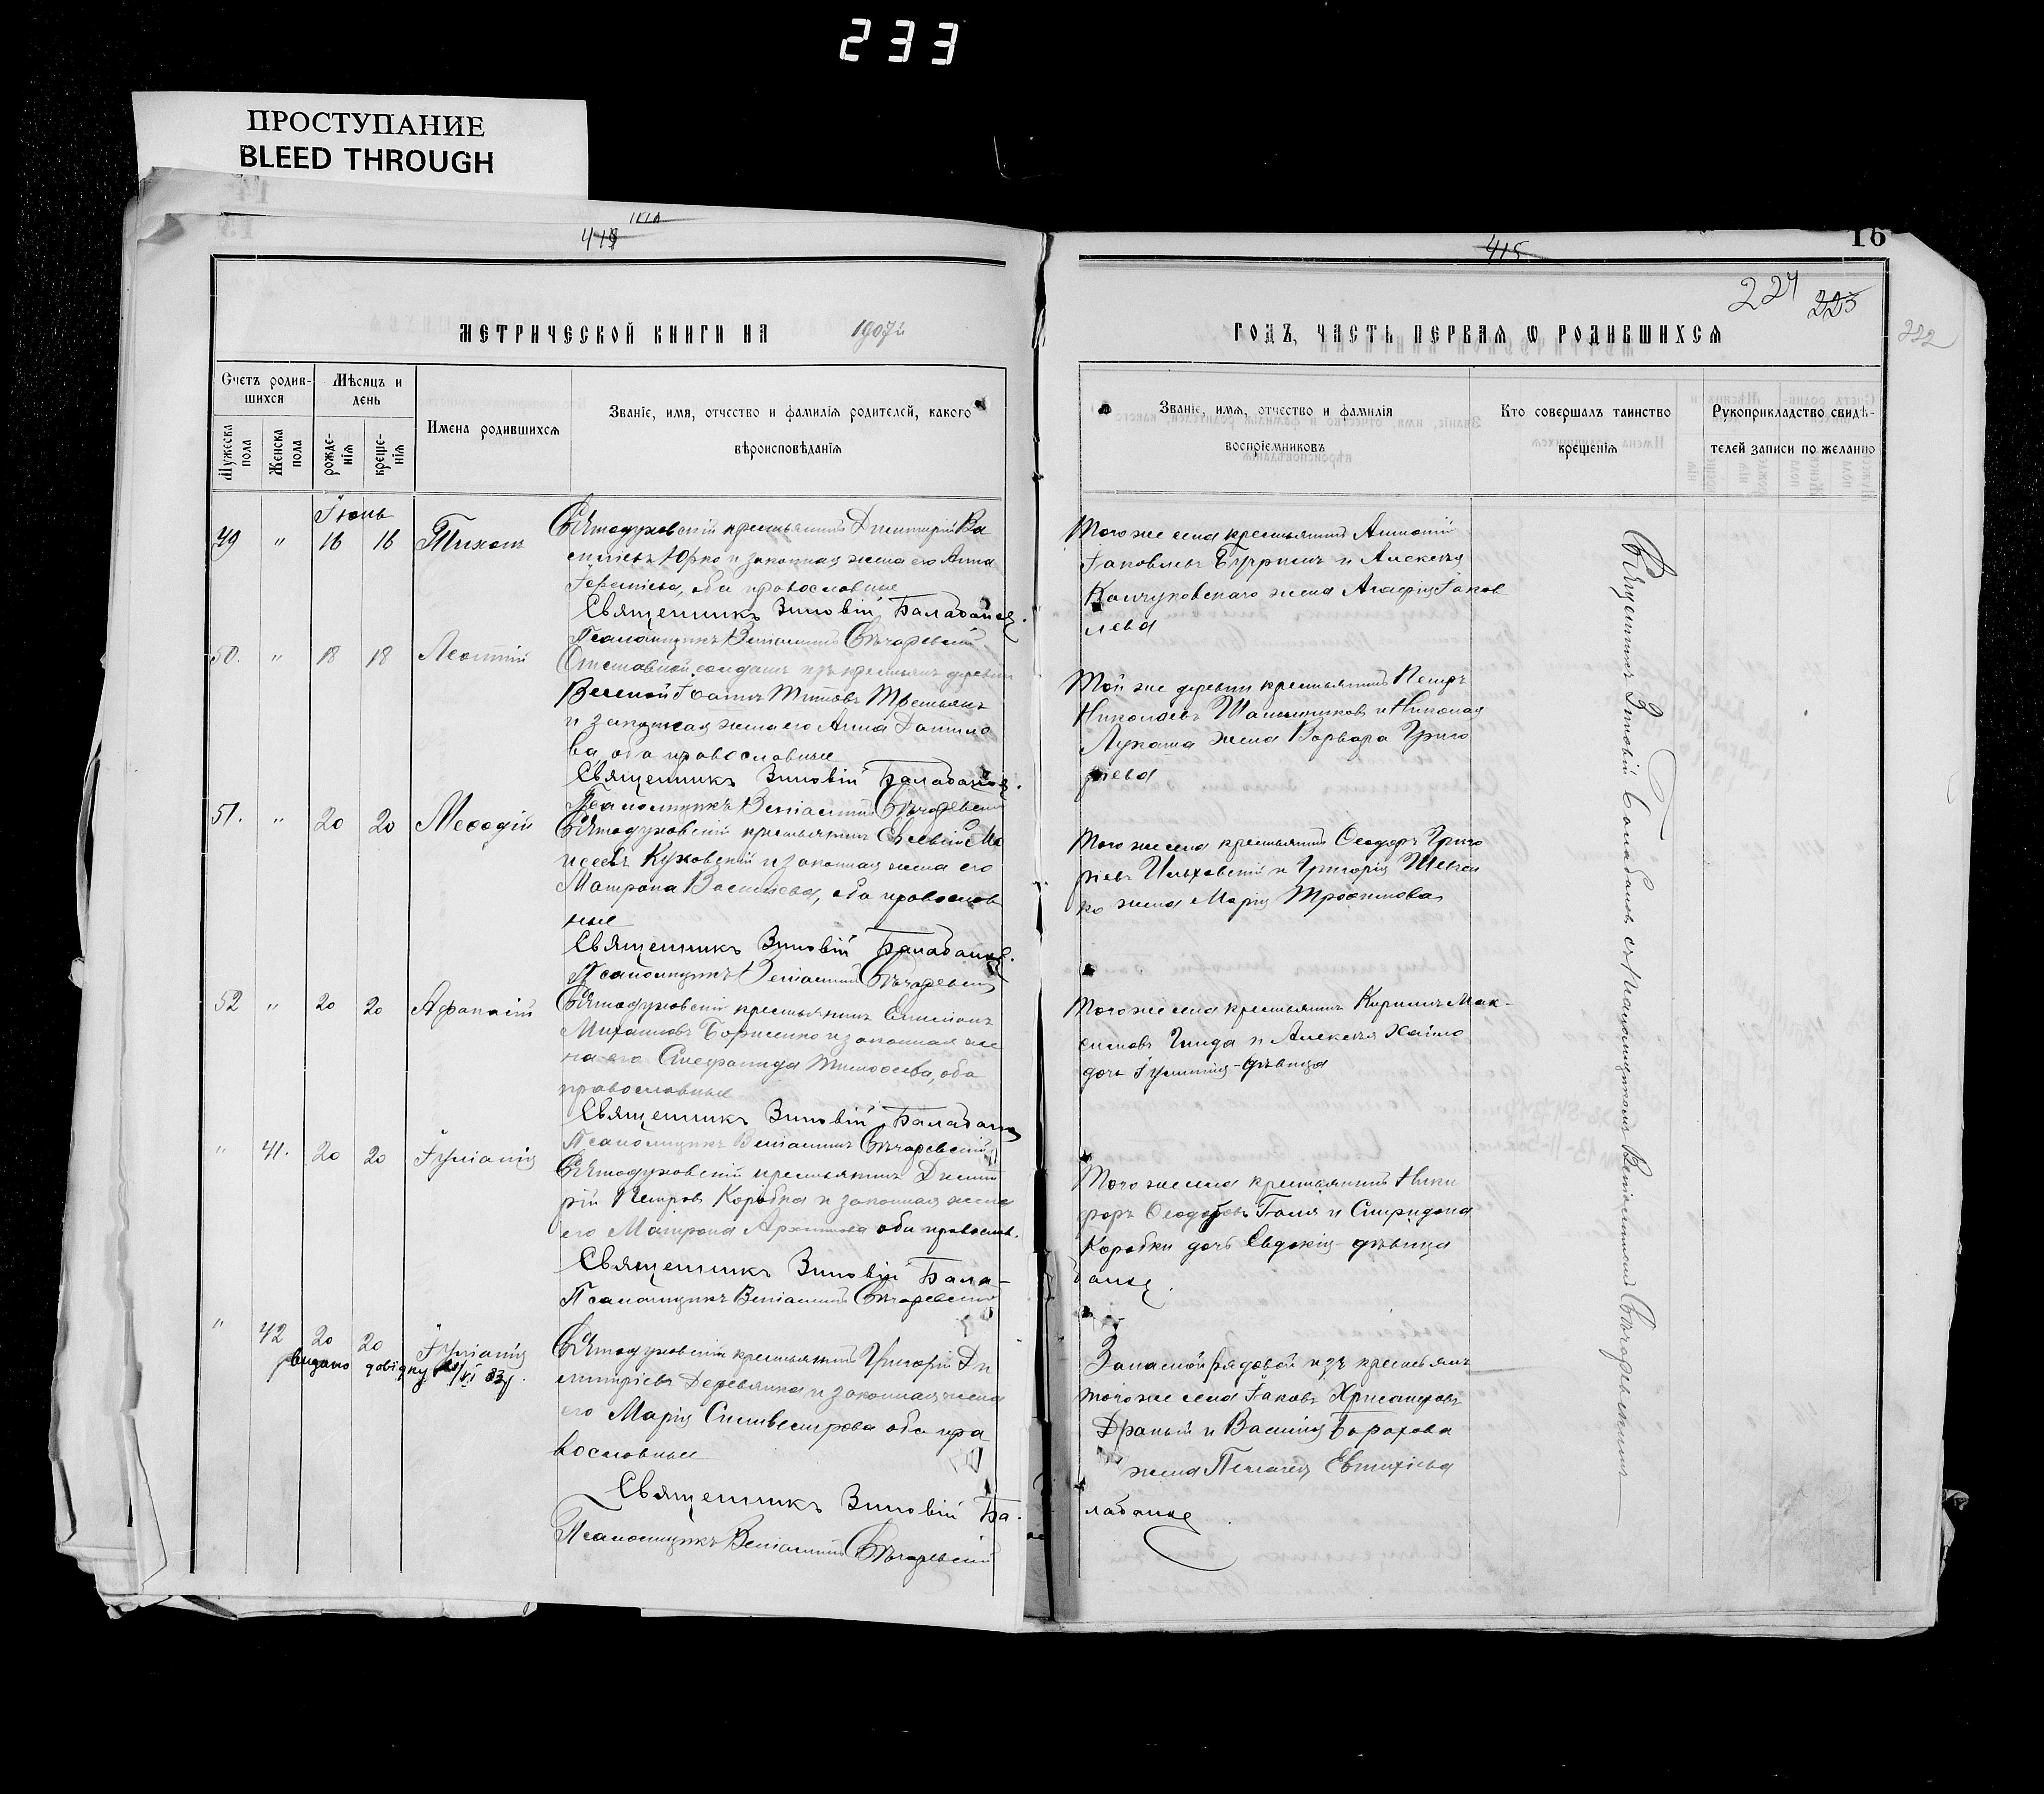 233
ПРОСТУПАНИЕ
BLEED THROUGH
419
415
16
224
223
222
МЕТРИЧЕСКОЙ КНИГИ НА 1907й
ГОДЪ, ЧАСТЬ ПЕРВАЯ Ѡ РОДИВШИХСЯ
Счетъ родив-
шихся
Мужеска пола
Женска пола
Мѣсяцъ и
день
рожде-
нія
креще-
нія
Имена родившихся
Званіе, имя, отчество и фамилія родителей, какого
вѣроисповѣданія
Званіе, имя, отчество и фамилія
воспріемниковъ
Кто совершалъ таинство
крещенія
Рукоприкладство свидѣ-
телей записи по желанію
Іюнь
49 " 16 16 Тихонъ
Святодуховскій крестьянинъ Димитрій Ва
сильевъ Юрко и законная жена его Анна
оба православные
Священникъ Зиновій Балабанов.
Псаломщикъ Веніаминъ
Того же села крестьянинъ Антоній
Іаковлевъ и Алексѣя
жена Агафія Іаков
лева
50. " 18 18 Леонтій
Отставной солдатъ изъ крестьянъ деревни
Веселой Іоаннъ Титовъ Третьякъ
и законная жена его Анна Данило
ва, оба православные
Священникъ Зиновій Балабанов.
Псаломщикъ Веніаминъ
Той же деревни крестьянинъ Петръ
Николаевъ и Николая
Лукаша жена Варвара Григо
ріева
51. " 20 20 Меѳодій
Святодуховскій крестьянинъ Евсевій Мо
исеевъ Куховскій и законная жена его
Матрона Васильева, оба православ
ные
Священникъ Зиновій Балабанов.
Псаломщикъ Веніаминъ
Того же села крестьянинъ Ѳеодоръ Григо
ріевъ и Григорія Шевчен
ко жена Марія Трофимова
52 " 20 20 Афанасій
Святодуховскій крестьянинъ Симеонъ
Михаиловъ Борисенко и законная же
на его Стефанида Тимоѳеева, оба
православные
Священникъ Зиновій Балабанов
Псаломщикъ Веніаминъ
Того же села крестьянинъ Кириллъ Мак-
симовъ и Алексѣя Хайло
дочь Іуліанія - дѣвица
" 41. 20 20 Іуліанія
Святодуховскій крестьянинъ Димит
рій Петровъ Коробка и законная жена
его Матрона Архипова оба православ.
Священникъ Зиновій Бала-
Псаломщикъ Веніаминъ
Того же села крестьянинъ Ники
форъ Ѳеодоровъ и Спиридона
Коробки дочь Евдокія - дѣвица
банов.
" 42 20 20 Іуліанія
видано довідку
Святодуховскій крестьянинъ Григорій Ди
митріевъ Деревянка и законная жена
его Марія Сильвестрова оба пра
вославные
Священникъ Зиновій Ба-
Псаломщикъ Веніаминъ
Запасной рядовой изъ крестьянъ
того же села Іаковъ Хрисанфовъ
Драный и Василія
жена Пелагея Евтихіева
лабанов
Священникъ Зиновій Балабановъ съ псаломщикомъ Веніаминомъ